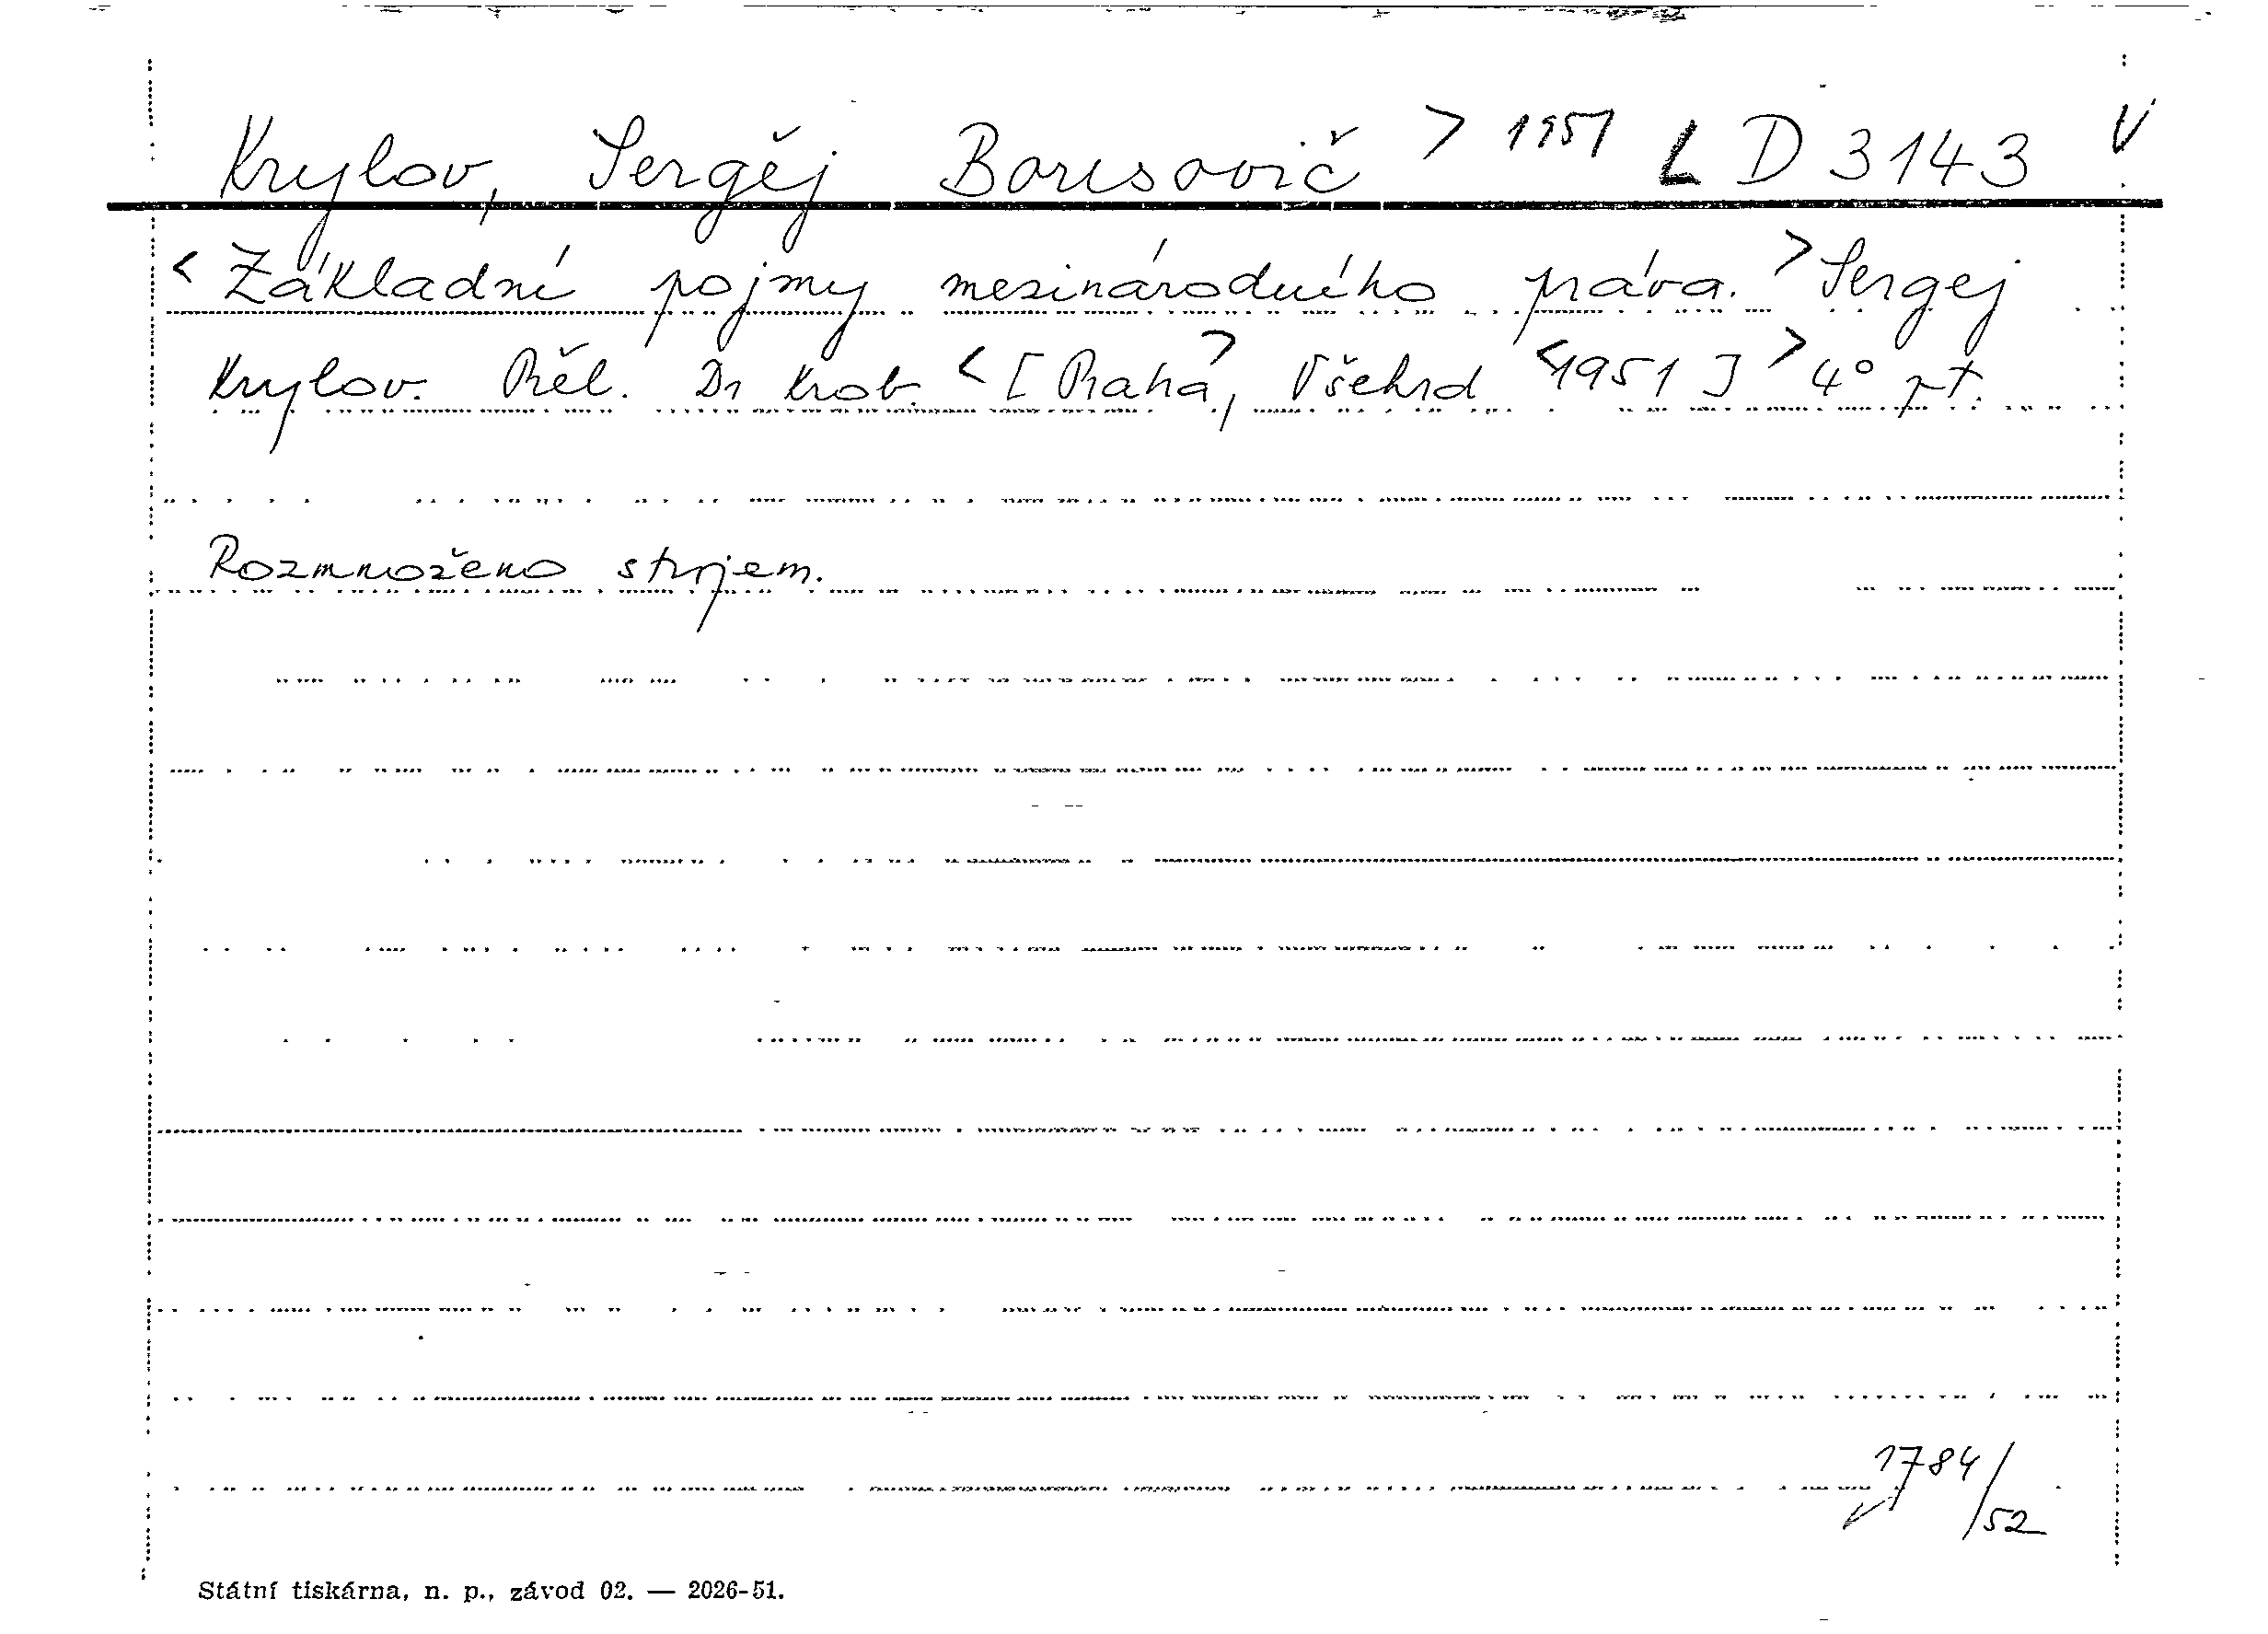 Krylov, Sergěj Borisovič > 1951 L D 3143 V
< Základní pojmy mezinárodního práva. > Sergej
Krylov. Přel. Dr Krob. < [Praha>, Všehrd <1951] > 4°
Rozmnoženo strojem.
1784/52
Státní tiskárna, n. p., závod 02. — 2026-51.